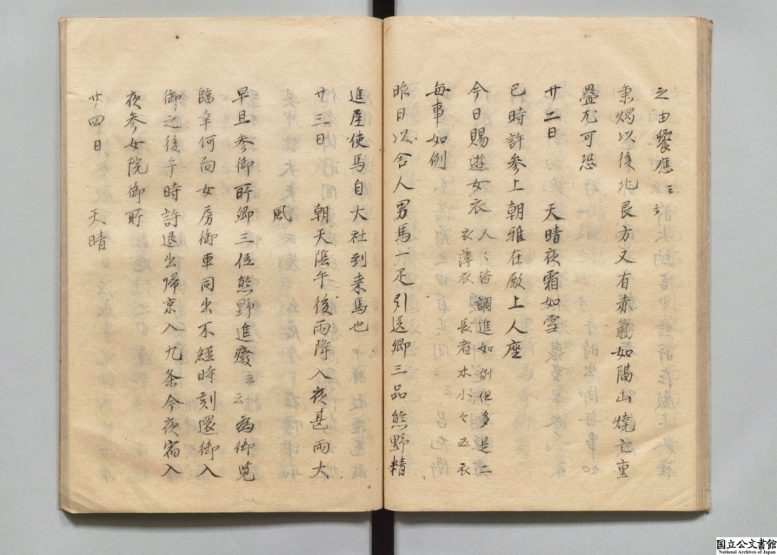 之由饗應云々
秉燭以後北艮方又有赤氣如隔山焼亡重
疊尤可恐
廿二日 天晴夜霜如雪
巳時許参上朝雅在殿上人座
今日賜遊女衣 人々皆調進如例但多是二
衣薄衣 長者水小々五衣
毎事如例
昨日以舎人男馬一疋引送卿三品熊野精
進屋使馬自大社到来馬也
廿三日 朝天陰午後雨降入夜甚雨大
風
早旦参御所卿三位熊野進發云々為御覧
臨幸何向女房御車同出不經時刻還御入
御之後午時許退出帰京入九条今夜宿入
夜参女院御所
廿四日 天晴
国立公文書館
National Archives of Japan